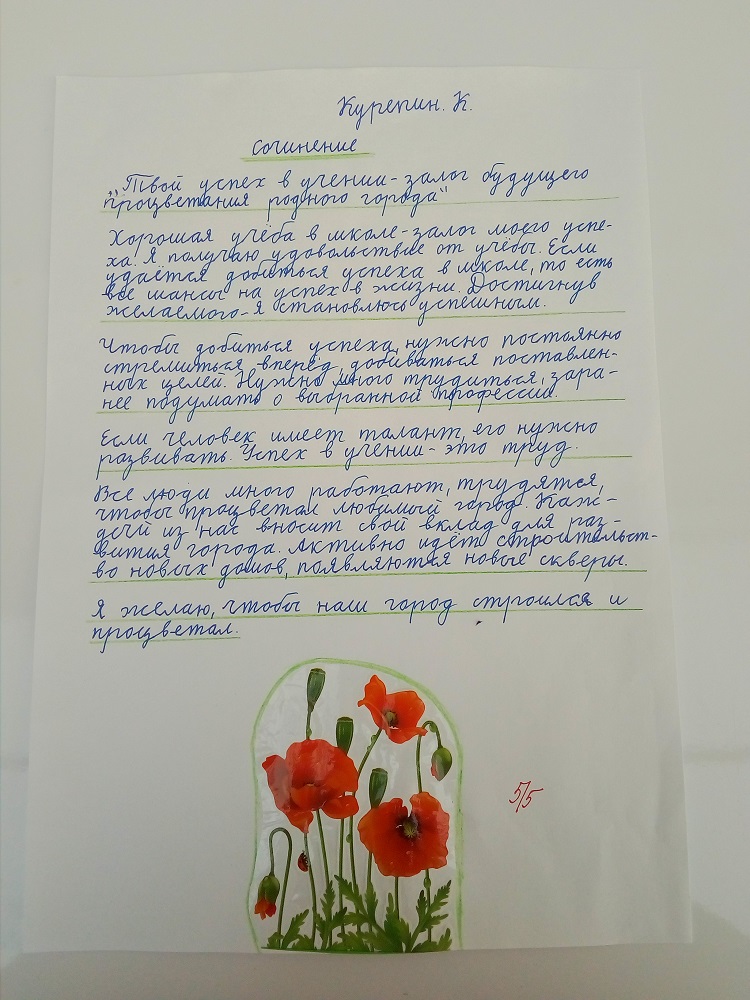 Курепин. К.
сочинение
„Твой успех в учении-залог будущего
процветания родного города"
Хорошая учёба в школе-залог моего успе-
ха. Я получаю удовольствие от учёбы. Если
удаётся добиться успеха в школе, то есть
все шансы на успех в жизни. Достигнув
желаемого-я становлюсь успешным.
Чтобы добиться успеха, нужно постоянно
стремиться вперёд, добиваться поставлен-
ных целей. Нужно много трудиться, зара-
нее подумать о выбранной профессии.
Если человек имеет талант, его нужно
развивать. Успех в учении- это труд.
Все люди много работают, трудятся,
чтобы процветал любимый город. Каж-
дый из нас вносит свой вклад для раз-
вития города. Активно идёт строительст-
во новых домов, появляются новые скверы.
Я желаю, чтобы наш город строился и
процветал.
5/5